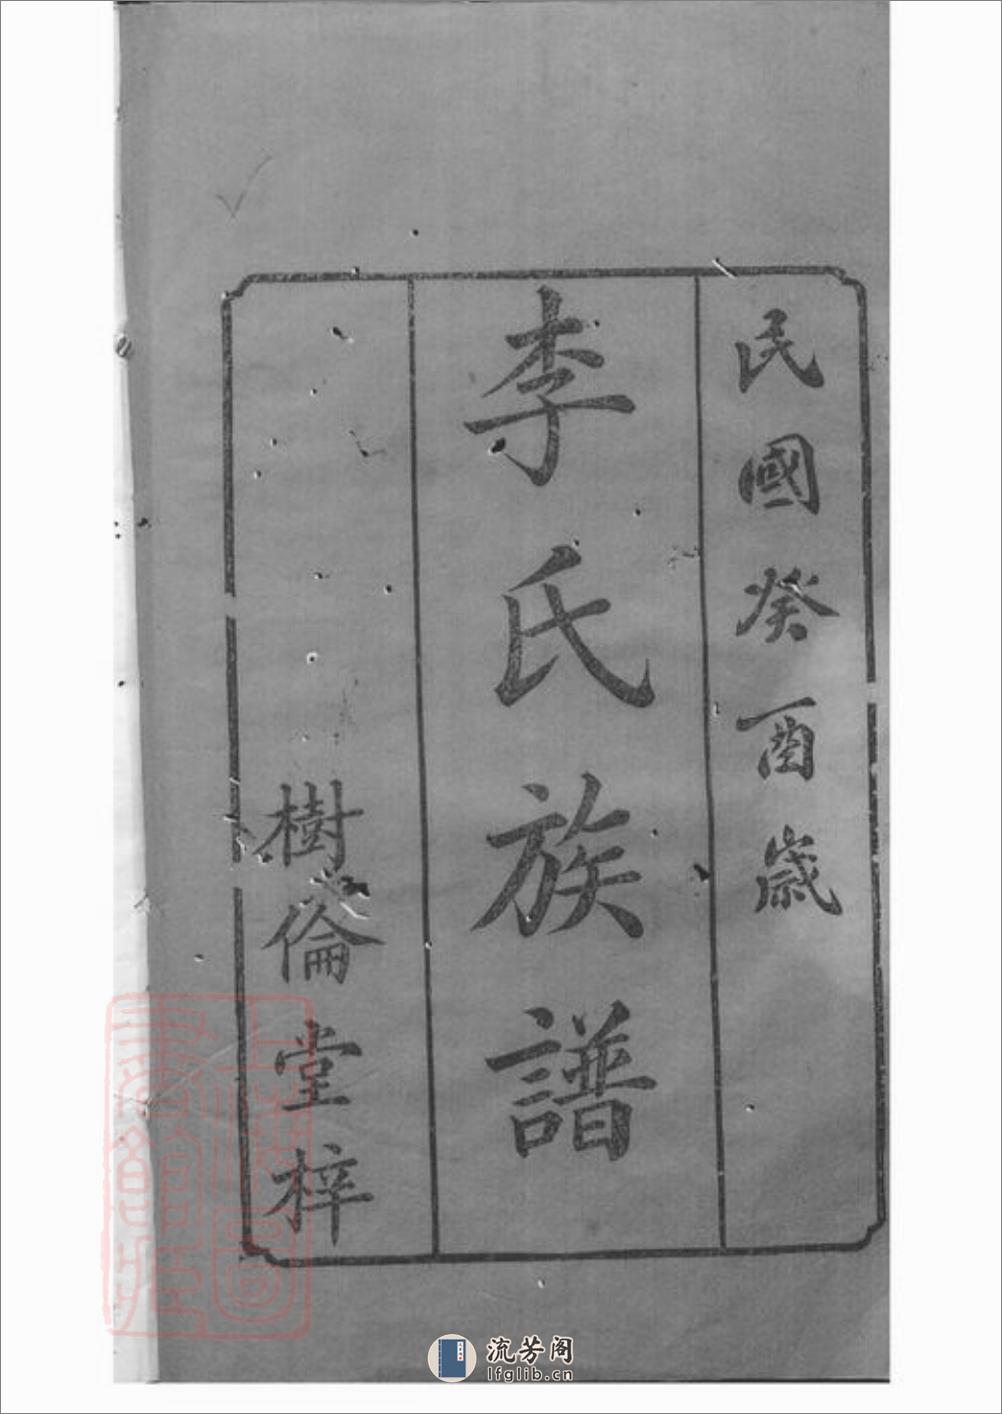 民國癸酉歲
李氏族譜
樹倫堂梓
流芳阁
lfglib.cn